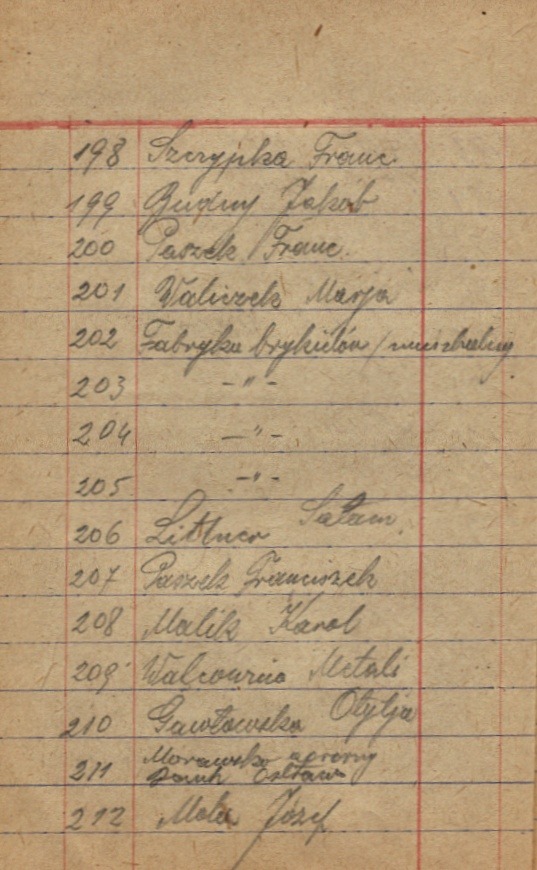 198 Szczypka Franc.
199 Gudny Jakób
200 Paszek Franc.
201 Waliczek Marja
202 Fabryka brykietów /
203 -"-
204 -"-
205 -"-
206 Littner Salam.
207 Paszek Franciszek
208 Malik Karol
209 Walcownia Metali
210 Gawłowska Otylja
211 Morawsko
212 Mola Józef